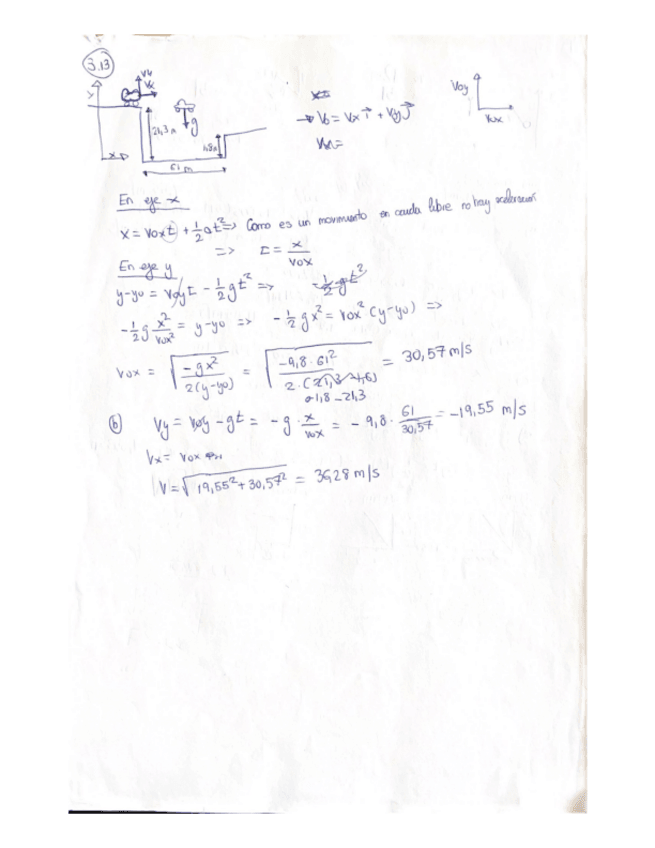 3.13
Vy
Vx
21,3 m
g
1,8m
61 m
x
→ V0 = Vx i⃗ + Vy j⃗
Voy
Vox
En eje x
x = Voxt + 1/2 at² => Como es un movimiento en caída libre no hay aceleración
=> t = x/Vox
En eje y
y-y0 = Voyt - 1/2 gt² => 1/2 gt²
-1/2 g x²/Vox² = y-y0 => -1/2 gx² = Vox² (y-y0) =>
Vox = √(-gx² / 2(y-y0)) = √(-9,8·61² / 2·(21,3-1,8)) = 30,57 m/s
1,8-21,3
b) Vy = Voy - gt = -g · x/Vox = - 9,8 · 61/30,57 = -19,55 m/s
Vx = Vox
V = √(19,55² + 30,57²) = 36,28 m/s